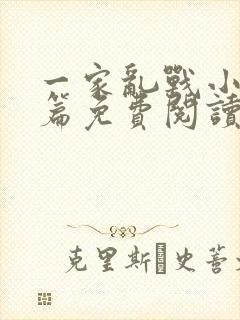 一家亂戰小
篇免費閱讀
克里斯 史蒈